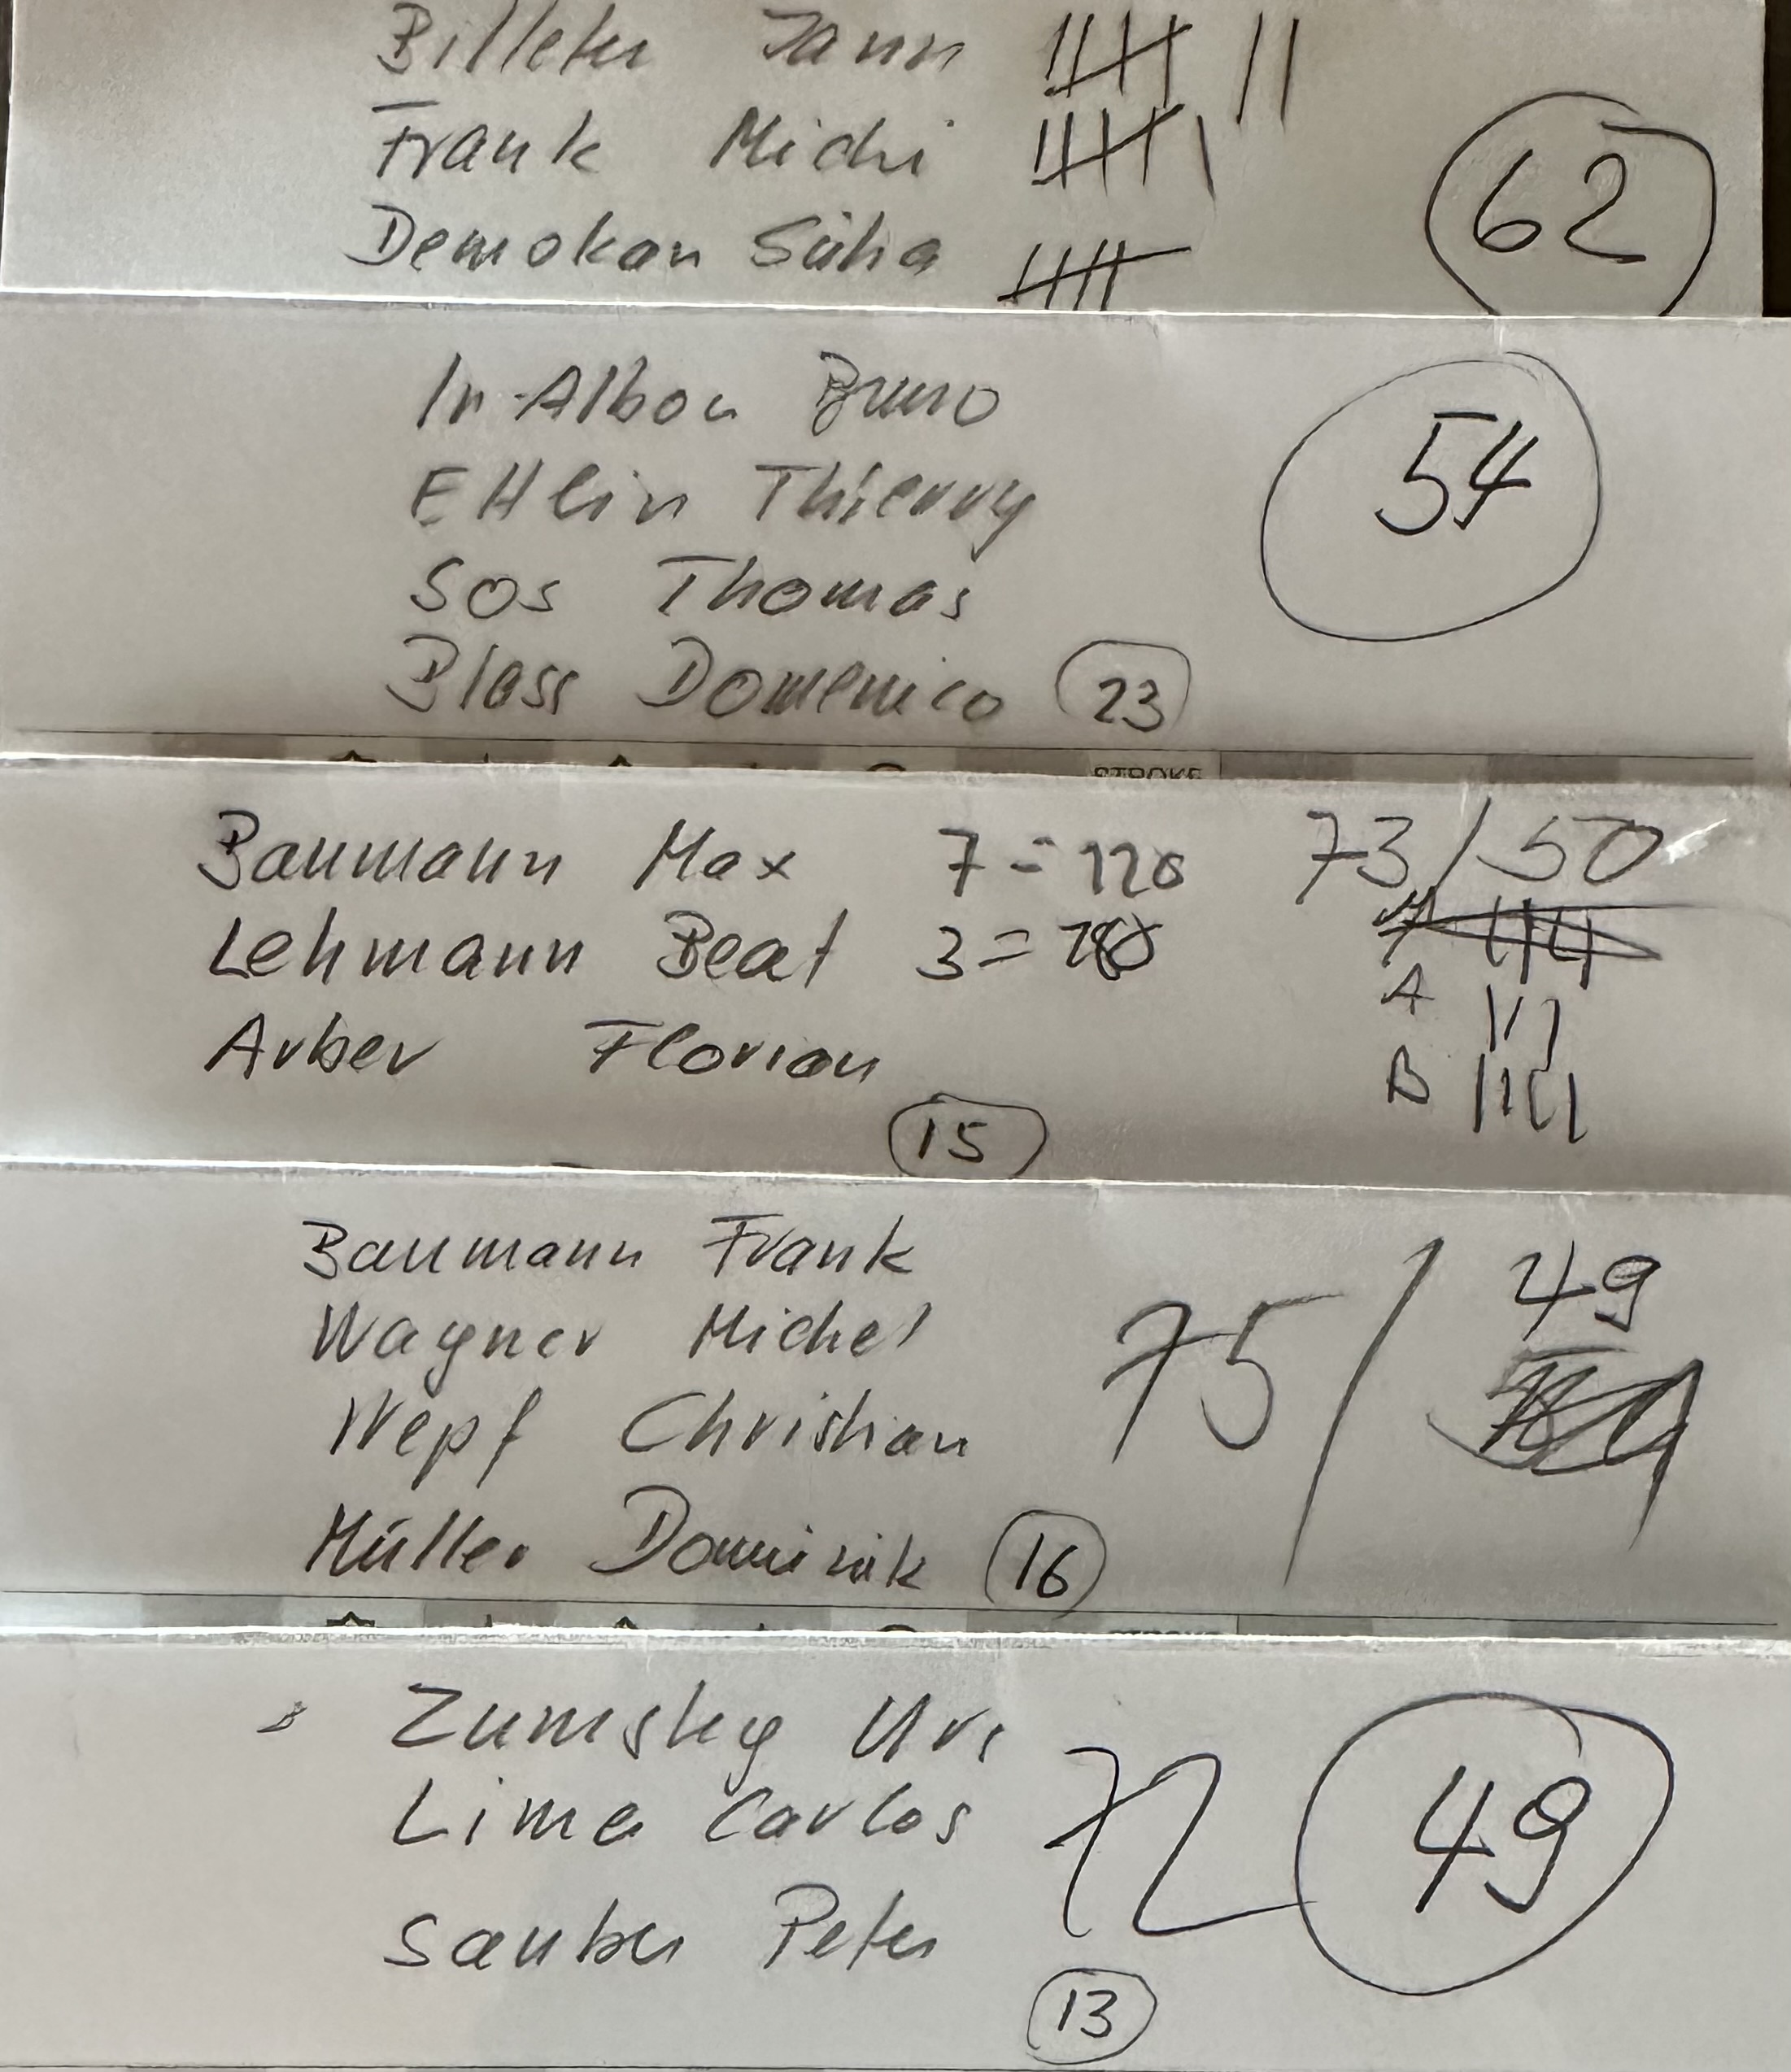 Billeter Jann 𝍸 ||
Frank Michi 𝍸 |
Demokan Süha 𝍸
62
In-Albon Bruno
54
Ettlin Thierry
Sos Thomas
Blass Domenico 23
STROKE
Baumann Max 7 = 120 73/50
Lehmann Beat 3 =
A |||
Arber Florian
B ||||
15
Baumann Frank 49
Wagner Michel 75 /
Wepf Christian
Müller Dominik 16
STROKE
Zumsteg Urs
72 49
Lima Carlos
Sauber Peter
13